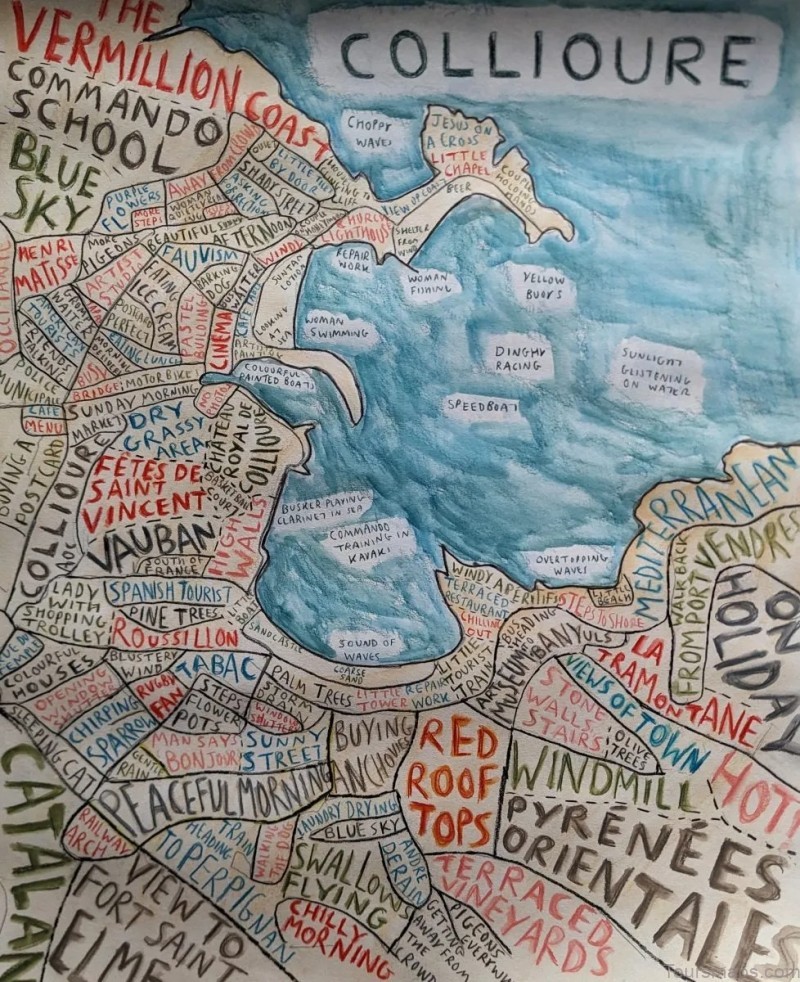 COLLIOURE
THE
VERMILLION COAST
COMMANDO
SCHOOL
BLUE
SKY
CHOPPY
WAVES
JESUS ON
A CROSS
LITTLE
CHAPEL
BEER
COUPLE
HOLDING
HANDS
CHURCH
LIGHTHOUSE
SHELTER
FROM
WIND
PURPLE
FLOWERS
MORE
STEPS
AWAY FROM CROWD
WOMAN
SHADY STREET
BEAUTIFUL AFTERNOON
HENRI
MATISSE
MORE
PIGEONS
FAUVISM
WINDY
SUNTAN
LOTION
ARTIST
STUDIO
EATING
ICECREAM
BARKING
DOG
WATER
POSTCARD
PERFECT
PASTEL
BUILDING
CINEMA
AMERICAN
TOURISTS
FRIENDS
TALKING
EATING LUNCH
POLICE
MUNICIPALE
BUSY
BRIDGE
MOTORBIKE
CAFE
MENU
SUNDAY MORNING
MARKET
BUYING A
POSTCARD
REPAIR
WORK
WOMAN
FISHING
YELLOW
BUOYS
WOMAN
SWIMMING
DINGHY
RACING
SUNLIGHT
GLISTENING
ON WATER
SPEEDBOAT
COLOURFUL
PAINTED BOATS
DRY
GRASSY
AREA
CHÂTEAU
ROYAL DE
COLLIOURE
BASKETBALL
COURT
COLLIOURE
AOC
FÊTES DE
SAINT
VINCENT
VAUBAN
HIGH
WALLS
SOUTH OF
FRANCE
BUSKER PLAYING
CLARINET IN SEA
COMMANDO
TRAINING IN
KAYAK!
OVERTOPPING
WAVES
SOUND OF
WAVES
MEDITERRANEAN
WALK BACK
FROM PORT VENDRES
ON
HOLIDAY
WINDY APERITIF
TERRACED
RESTAURANT
CHILLING
OUT
STEPS TO SHORE
LITTLE
BEACH
BUS
HEADING
TO BANYULS
LADY
WITH
SHOPPING
TROLLEY
SPANISH TOURIST
PINE TREES
ROUSSILLON
SANDCASTLE
COARSE
SAND
LITTLE
TOURIST
TRAIN
LA
TRAMONTANE
VIEWS OF TOWN
STONE
WALLS
STAIRS
OLIVE
TREES
HOT!
COLOURFUL
HOUSE
BLUSTERY
WIND
TABAC
PALM TREES
LITTLE
TOWER
REPAIR
WORK
OPENING
WINDOW
SHUTTERS
RUGBY
FAN
STORM
DRAIN
WINDOW
SHUTTERS
CHIRPING
SPARROW
STEPS
FLOWER
POTS
MAN SAYS
BONJOUR
SUNNY
STREET
SLEEPING CAT
GENTLE
RAIN
BUYING
ANCHOVIES
RED
ROOF
TOPS
WINDMILL
PYRÉNÉES
ORIENTALES
CATALAN
PEACEFUL MORNING
RAILWAY
ARCH
TRAIN
HEADING
TO PERPIGNAN
WALKING
THE DOG
LAUNDRY DRYING
BLUE SKY
ANDRE
DERAIN
SWALLOWS
FLYING
CHILLY
MORNING
TERRACED
VINEYARDS
VIEW TO
FORT SAINT
ELME
PIGEONS
GETTING
AWAY FROM
CROWD
ToursMaps.com